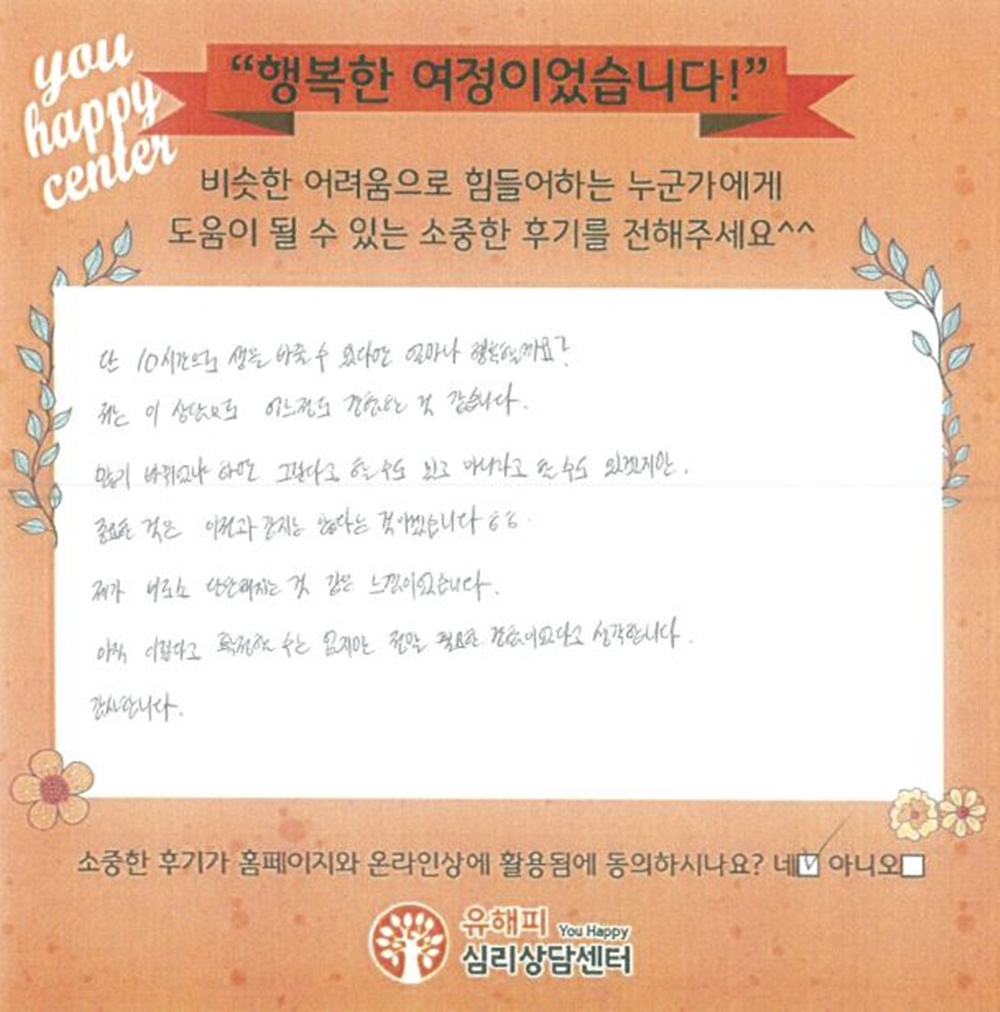 you
happy
center
“행복한 여정이었습니다!”
비슷한 어려움으로 힘들어하는 누군가에게
도움이 될 수 있는 소중한 후기를 전해주세요^^
단 10시간으로 생을 바꿀 수 있다면 얼마나 행복할까요?
저는 이 상담으로 어느정도 경험한 것 같습니다.
많이 바뀌었냐 하면 그렇다고 할 수도 있고 아니라고 할 수도 있겠지만,
중요한 것은 이전과 같지는 않다는 것이겠습니다 ㅎㅎ.
제가 비로소 단단해지는 것 같은 느낌이었습니다.
아직 이렇다고 확정할 수는 없지만 정말 필요한 경험이었다고 생각합니다.
감사합니다.
소중한 후기가 홈페이지와 온라인상에 활용됨에 동의하시나요? 네☑ 아니오☐
유해피 You Happy
심리상담센터